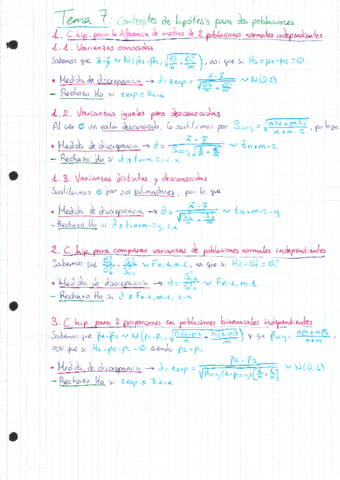 Tema 7: Contrastes de hipótesis para dos poblaciones
1. C. hip. para la diferencia de medias de 2 poblaciones normales independientes
1.1. Varianzas conocidas
Sabemos que x̄-ȳ ~ N(μ₁-μ₂, √(σ₁²/n + σ₂²/m)), así que si H₀ = μ₁-μ₂ = 0:
• Medida de discrepancia → d = zexp = (x̄-ȳ)/√(σ₁²/n + σ₂²/m) ~ N(0,1)
- Rechazo H₀ si zexp ≥ z
1.2. Varianzas iguales pero desconocidas
Al ser σ un valor desconocido, lo sustituimos por Sconj = , por lo
• Medida de discrepancia → d = (x̄-ȳ)/(Sconj √(1/n + 1/m)) ~ tn+m-2
- Rechazo H₀ si d ≥ tn+m-2, 1-α
1.3. Varianzas distintas y desconocidas
Sustituimos σ por sus estimadores, por lo que
• Medida de discrepancia → d = ~ tn+m-2-g
- Rechazo H₀ si d ≥ tn+m-2-g, 1-α
2. C. hip. para comparar varianzas de poblaciones normales independientes
Sabemos que ~ Fn-1, m-1, así que si H₀ = σ₁² = σ₂²
• Medida de discrepancia → d = ~ Fn-1, m-1
- Rechazo H₀ si d ≥ Fn-1, m-1, 1-α
3. C. hip. para 2 proporciones en poblaciones binomiales independientes
Sabemos que p̂₁-p̂₂ ~ N(p₁-p₂, ) y que
así que si H₀ = p₁-p₂ = 0 siendo p₁ = p₂
• Medida de discrepancia → d = zexp = ~ N(0,1)
- Rechazo H₀ si zexp ≥ z1-α